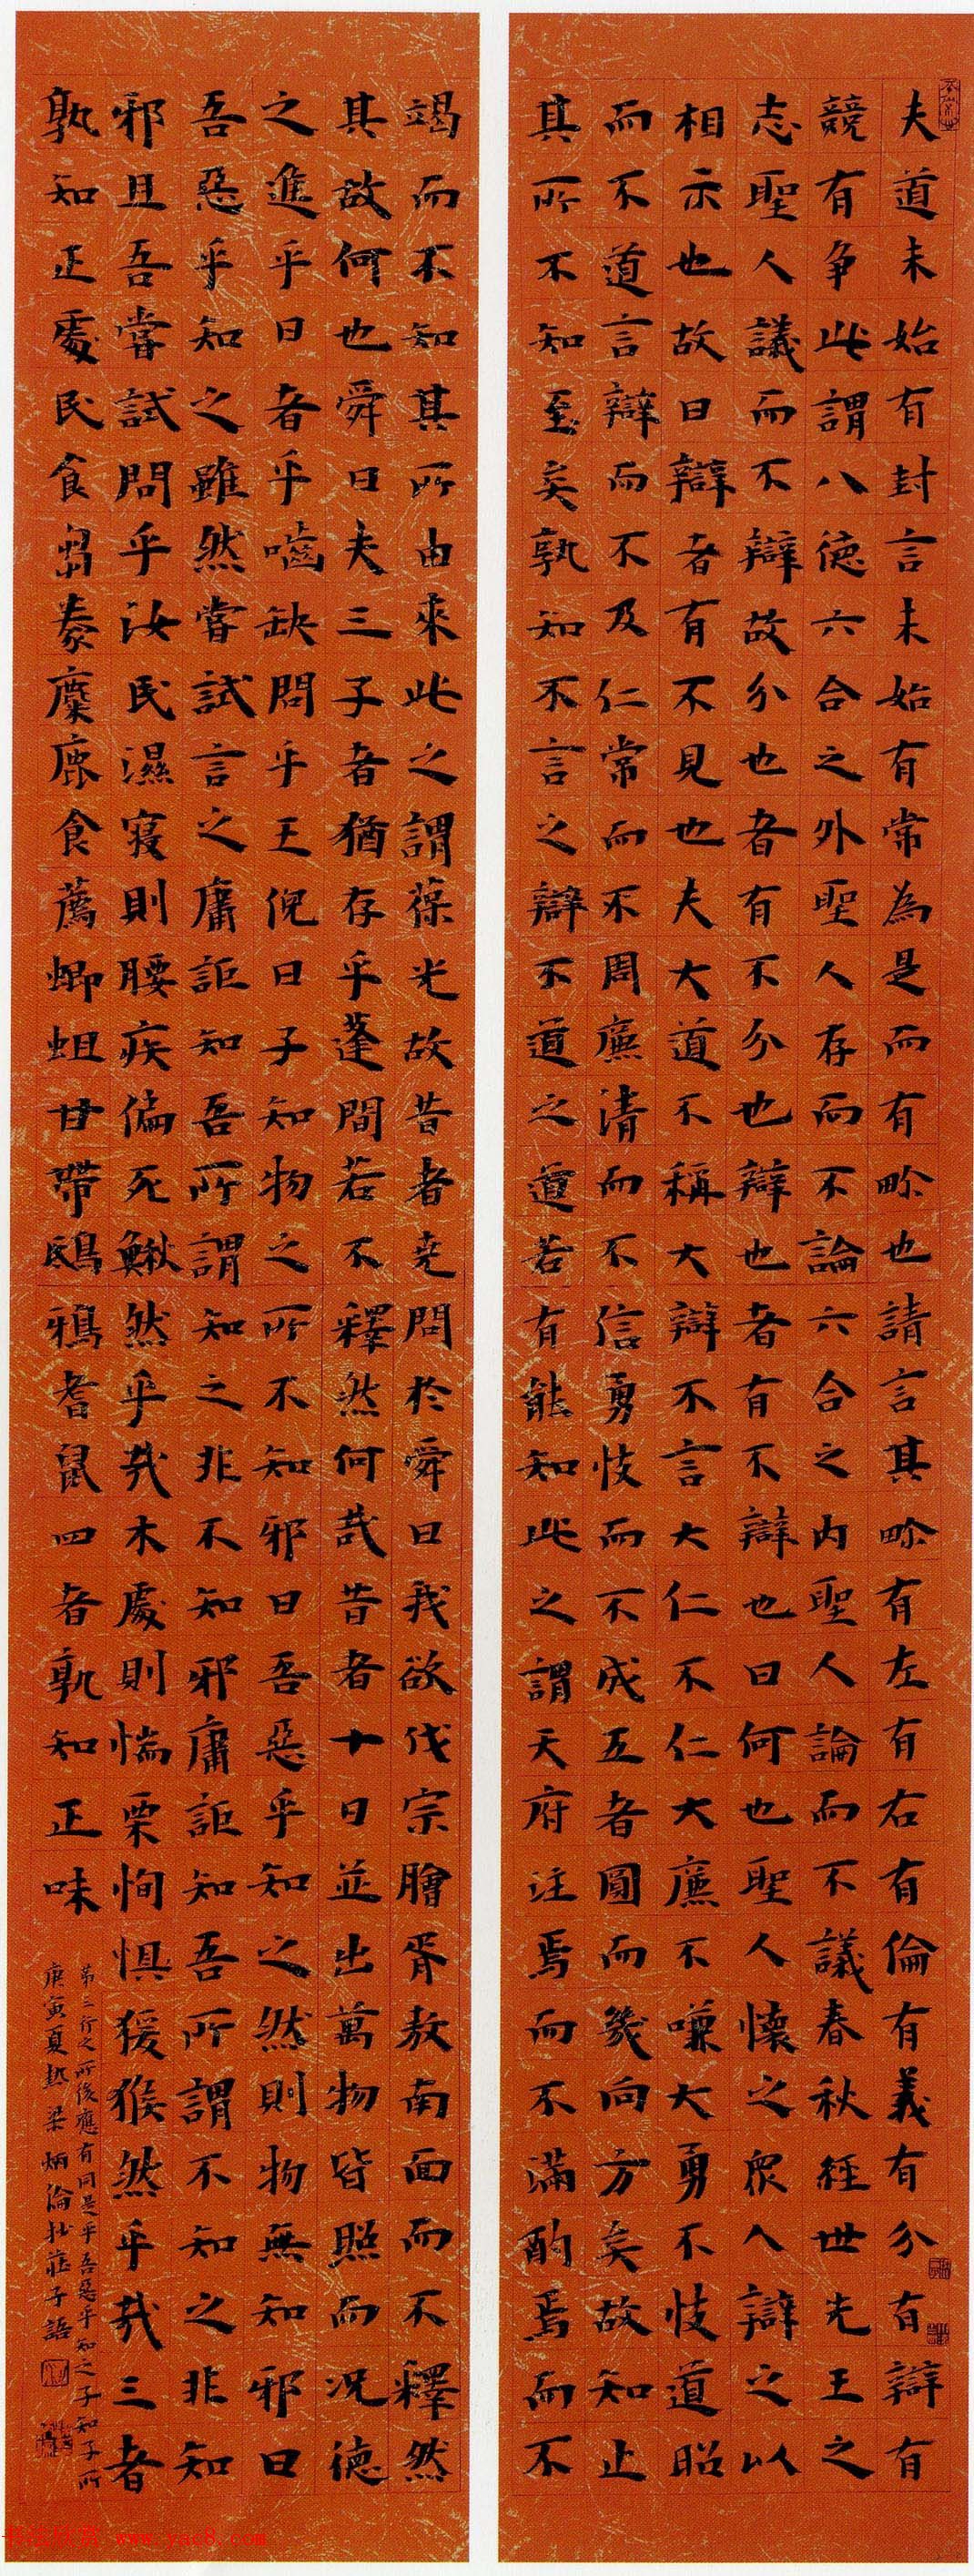 夫道未始有封言未始有常為是而有畛也請言其畛有左有右有倫有義有分有辯有
競有爭此謂八德六合之外聖人存而不論六合之内聖人論而不議春秋經世先王之
志聖人議而不辯故分也者有不分也辯也者有不辯也曰何也聖人懷之衆人辯之以
相示也故曰辯者有不見也夫大道不稱大辯不言大仁不仁大廉不嗛大勇不忮道昭
而不道言辯而不及仁常而不周廉清而不信勇忮而不成五者圓而幾向方矣故知止
其所不知至矣孰知不言之辯不道之道若有能知此之謂天府注焉而不滿酌焉而不
竭而不知其所由來此之謂葆光故昔者堯問於舜曰我欲伐宗膾胥敖南面而不釋然
其故何也舜曰夫三子者猶存乎蓬間若不釋然何哉昔者十日並出萬物皆照而況德
之進乎日者乎嚙缺問乎王倪曰子知物之所不知邪曰吾惡乎知之然則物無知邪曰
吾惡乎知之雖然嘗試言之庸詎知吾所謂知之非不知邪庸詎知吾所謂不知之非知
邪且吾嘗試問乎汝民濕寢則腰疾偏死鰍然乎哉木處則惴栗恂懼猨猴然乎哉三者
孰知正處民食芻豢麋鹿食薦蝍蛆甘帶鴟鴉耆鼠四者孰知正味
第三行之所後應有同是乎吾惡乎知之子知子所
庚寅夏熱梁炳倫抄莊子語
书法欣赏 www.yac8.com